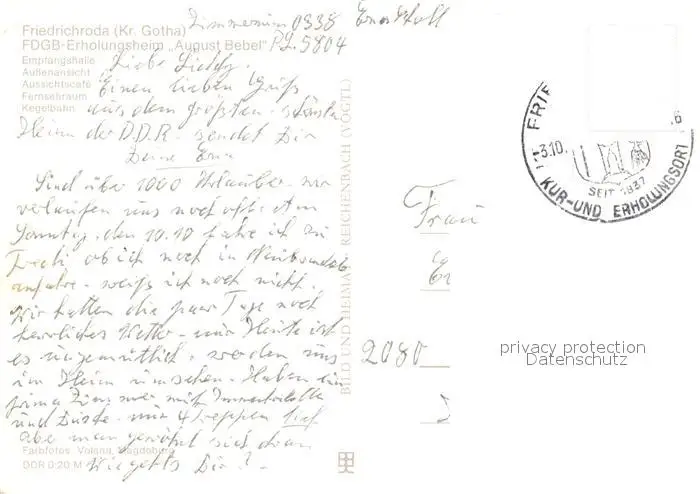 Zimmernum 0338
Friedrichroda (Kr. Gotha)
FDGB-Erholungsheim „August Bebel“ PL. 5804
Empfangshalle
Außenansicht
Aussichtscafé
Fernsehraum
Kegelbahn
Liebe
Einen lieben Gruß
aus dem größten
Heim der D.D.R. sendet Dir
Deine
Sind über 1000 Urlauber. wir
verlaufen uns noch oft. Am
Sonntag, den 10.10 fahre ich zu
ob ich noch in
anfahre weiß ich noch nicht.
Wir hatten die paar Tage noch
herrliches Wetter nur Heute ist
es ungemütlich. werden uns
im Heim umsehen. Haben ein
prima Zimmer mit Innentoilette
und Dusche. nur 4 Treppen
aber man gewöhnt sich dran
Wie geht's Dir?
Farbfotos Volana, Magdeburg
DDR 0:20 M
BILD UND HEIMAT REICHENBACH (VOGTL)
FRIE
-3.10.
SEIT 1837
KUR-UND ERHOLUNGSORT
Frau
2080
privacy protection
Datenschutz